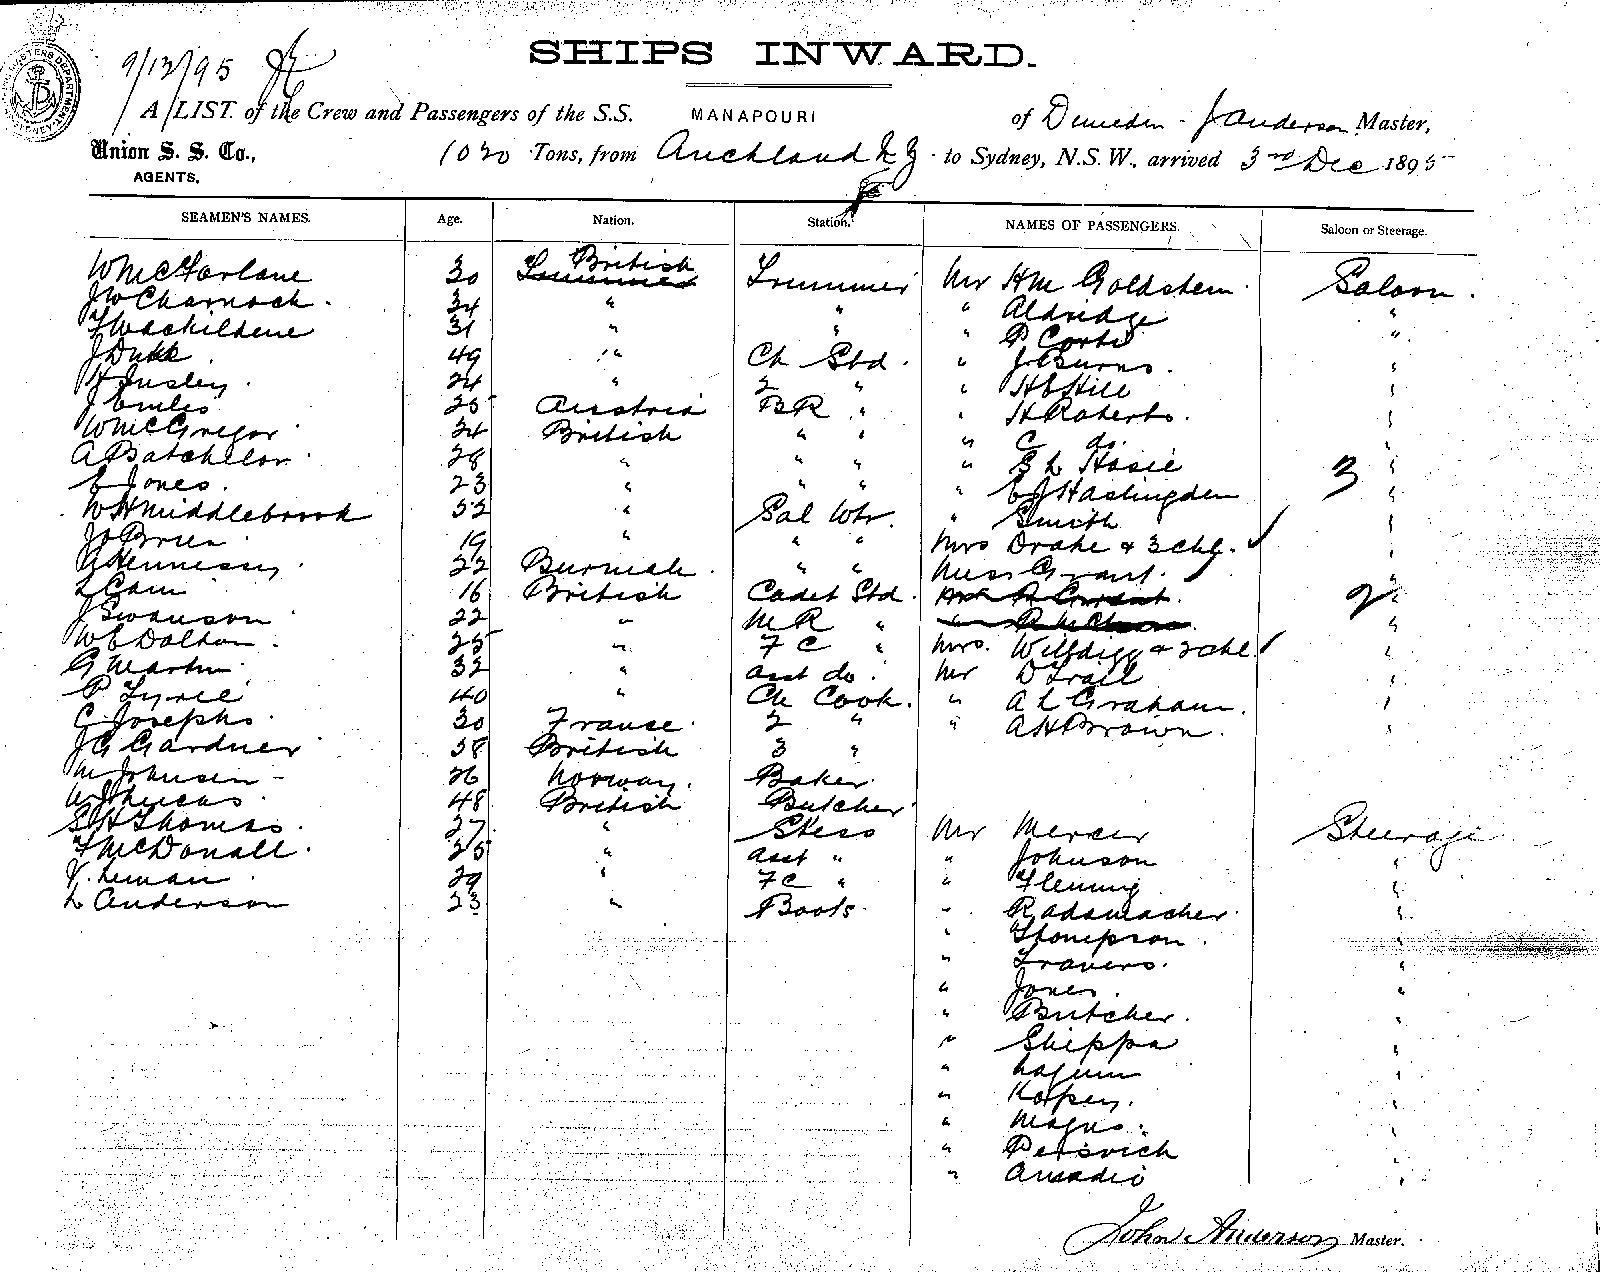 SHIPS INWARD.
9/12/95
A LIST of the Crew and Passengers of the S.S. MANAPOURI of Dunedin - J Anderson Master,
Union S. S. Co., 1020 Tons, from Auckland N Z. to Sydney, N.S.W., arrived 3rd Dec 1895
AGENTS.
SEAMEN'S NAMES. Age. Nation. Station. NAMES OF PASSENGERS. Saloon or Steerage.
W McFarlane 30 British Trimmer Mr HM Goldstein Saloon.
J W Charnock. 34 " " " Aldridge "
31 " " " P "
J Duke 49 " Ch Std. " J C Burns. "
H Insley. 24 " 2 " " H E Hill "
J 25 Austria BR " " H Roberts. "
W McGregor 34 British " " " C do. "
A Batchelor 28 " " " " Hosie 3 "
E Jones. 23 " " " " E J Haslingden "
W H Middlebrook 32 " Sal Wtr. " Smith "
J O'Brien 19 " " " Mrs Drake & 3 chl. "
Hennessy. 22 Burmah. " " Miss Grant. "
L Cam 16 British Cadet Std. 2 "
J Swanson 22 " M R " "
W E Dalton. 25 " F C " Mrs. & 2 chl. "
G Martin. 32 " asst do. Mr D Trail "
P Tyrie 40 " Ch Cook. " A L Graham. "
C Josephs. 30 France. 2 " " A H Brown. "
J G Gardner 38 British 3 "
M Johnsen - 26 Norway. Baker.
W J Lucas. 48 British Butcher
S H Thomas. 27 " Stess Mr Mercer Steerage
F McDonall. 25 " asst " " Johnson "
V. Leman 29 " F C " " Fleming "
L Anderson 23 " Boots. " Radamacher. "
" Thompson. "
" Travers. "
" Jones. "
" Butcher. "
" Shippa "
" "
" "
" Magus. "
" Petsvich "
" Amadio "
John Anderson Master.